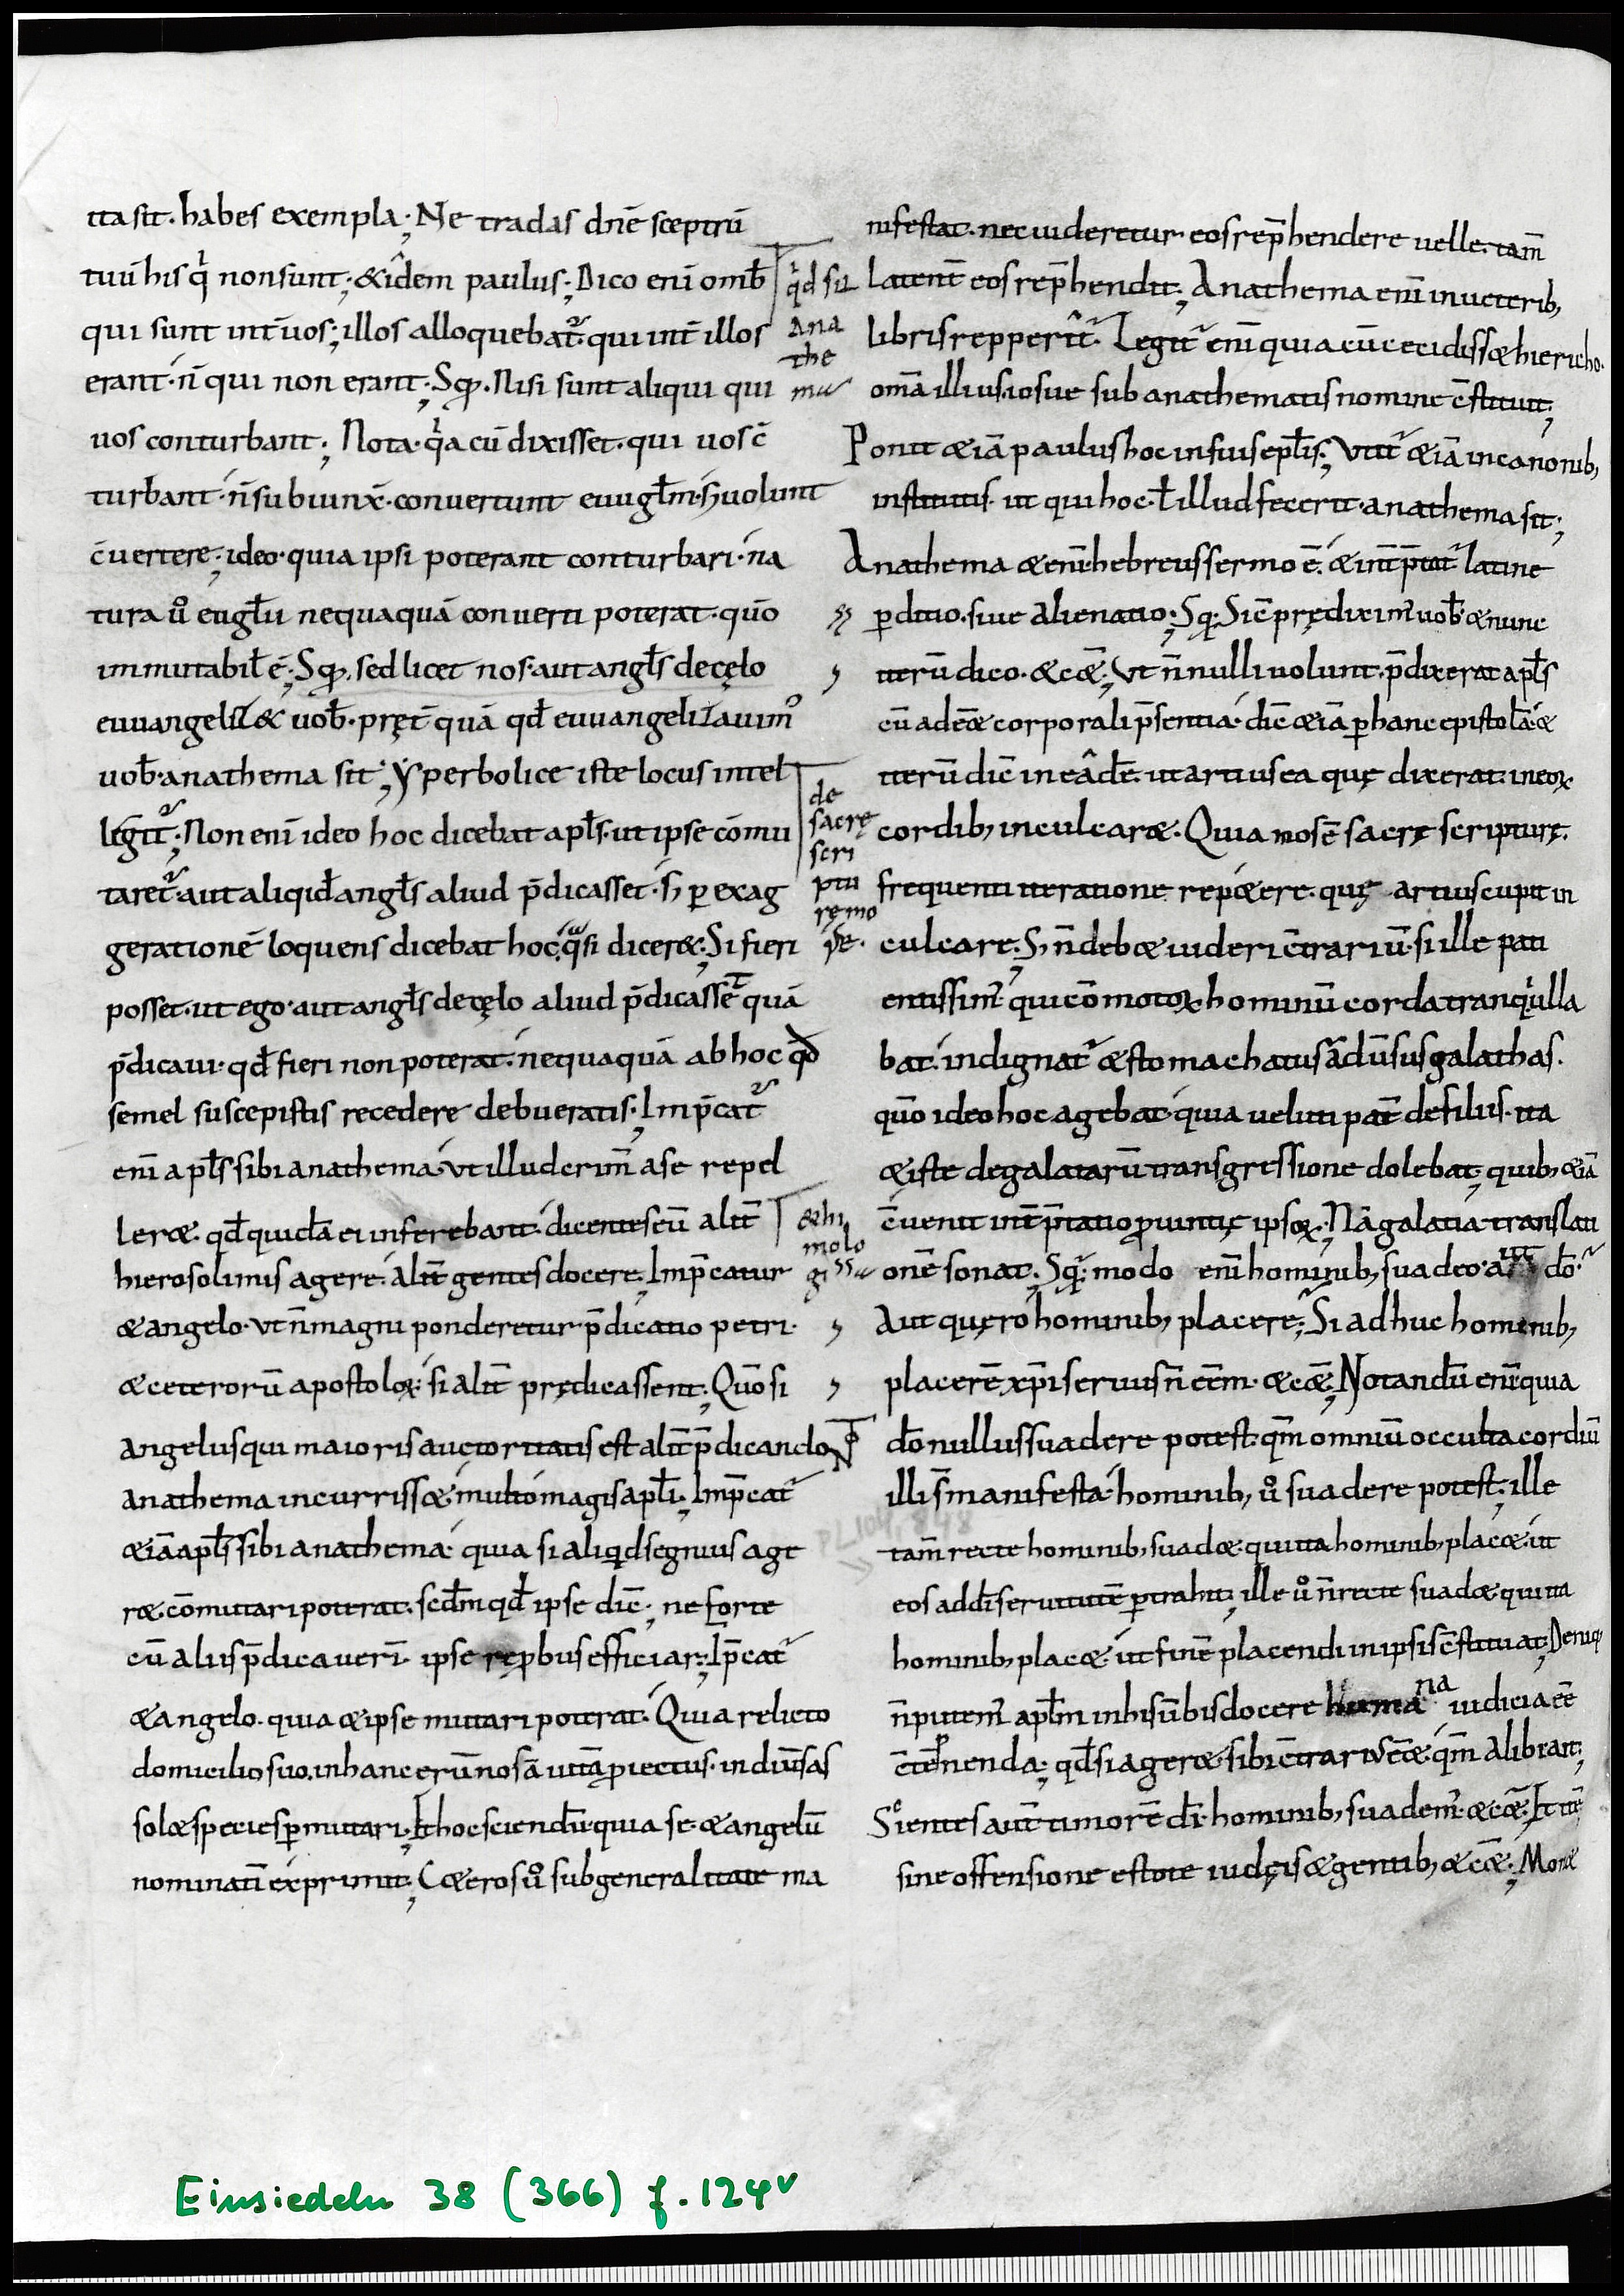 ita sit· habes exempla; Ne tradas dnē sceptrū
tuū his q̇ non sunt; & idem paulus; Dico enī omb̄
qui sunt int̄ uos; illos alloquebat᷑ qui int̄ illos
erant· n̄ qui non erant; Sꝙ. Nisi sunt aliqui qui
uos conturbant; Nota· q̇a cū dixisset· qui uos c̄
turbant· n̄ subiunx̄· convertunt euugłm· ꞩ uolunt
c̄uertere; ideo· quia ipsi poterant conturbari· na
tura ů eugłii nequaquā converti poterat· quō
immutabił ē; Sꝙ. sed licet nos· aut angłs de cęlo
euuangeliz& uob̄· pręt̄ quā qđ euuangelizauim᷒
uob̄· anathema sit; Yperbolice iste locus intel
legit᷑; Non enī ideo hoc dicebat apłs· ut ipse cōmu
taret᷑ aut aliqid angłs aliud p̄dicasset· ꞩ ꝑ exag
gerationē loquens dicebat hoc, q̄si dicer&; Si fieri
posset· ut ego· aut angłs de cęlo aliud p̄dicassēt quā
p̄dicaui· qđ fieri non poterat· nequaquā ab hoc qđ
semel suscepistis recedere debueratis; Imp̄cat᷑
enī apłs sibi anathema· ut illud crim̄ a se repel
ler&· qđ quidā ei inferebant· dicentes eū alit̄
hierosolimis agere· alit̄ gentes docere; Imp̄catur
& angelo· ut n̄ magni ponderetur p̄dicatio petri·
& ceterorū apostoloꝝ· si alit̄ prędicassent; Quō si
angelus qui maioris auctoritatis est alit̄ p̄dicando
anathema incurriss&· multo magis apłi; Imp̄cat᷑
&iā apłs sibi anathema· quia si aliqđ segnius age
r&· cōmutari poterat· scdm̄ qđ ipse dic̄; ne forte
cū aliis p̄dicauerī· ipse reꝓbus efficiar; Ip̄cat᷑
& angelo· quia & ipse mutari poterat· Quia relicto
domicilio suo· in hanc erūnosā uitā ꝓiectus· in diūsas
sol& species ꝑmutari; Et hoc sciendū· quia se· & angelū
nominatī exprimit; C&eros ů sub generalitate ma
q̇d sit
ana
the
ma
de
sacrę
scri
ptu
rę mo
re·
&hi
molo
gi
nifestat· nec uideretur eos rep̄hendere uelle· tam̄
latent̄ eos rep̄hendit; Anathema enī in ueterib,
libris repperit᷑· Legit᷑ enī quia cū cecidiss& hiericho·
omā illius iosue sub anathematis nomine c̄stituit;
Ponit &iā paulus hoc in suis epłis; Utit᷑ &iā in canonib,
institutis· ut qui hoc· ł illud fecerit· anathema sit;
Anathema &enī hebreus sermo ē· & int̄p̄tat᷑ latine
ꝑditio· siue alienatio; Sꝙ. Sic̄ prędixim᷒ uob̄· & nunc
iterū dico· & c&̄; Ut n̄nulli uolunt· p̄dixerat apłs
cū ad eā& corporali p̄sentia· dic̄ &iā ꝑ hanc epistolā· &
iterū dic̄ in eādē· ut artius ea quę dixerat· in eoꝝ
cordib, inculcar&· Quia mos ē sacrę scripturę·
frequenti iteratione rep&ere· quę artius cupit in
culcare; Ꞩ n̄ deb& uideri c̄trariū· si ille pati
entissim᷒ qui cōmotoꝝ hominū corda tranq̇lla
bat· indignat᷑ & stomachatus ad ūsus galathas·
quō ideo hoc agebat· quia veluti pat̄ de filiis· ita
& iste de galatarū transgressione dolebat; quib, &iā
c̄uenit int̄p̄tatio ꝓuintię ipsoꝝ; Nā galatia translati
onē sonat; Sꝙ. modo enī hominib, suadeo· aut dō·
Aut quęro hominib, placere; Si adhuc hominib,
placerē xp̄i seruus n̄ eēm· & c&̄; Notandū enī quia
dō nullus suadere potest· qm̄ omniū occulta cordiū
illi s̄ manifesta· hominib, ů suadere potest; ille
tam̄ recte hominib, suad&· qui ita hominib, plac&· ut
eos ad dī seruitutē ꝑtrahit; ille ů n̄ recte suad&· qui ita
hominib, plac&· ut finē placendi in ipsis c̄stituat; Deniq,
n̄ putem᷒ apłm in his ūbis docere humana iudicia eē
c̄tēpnenda; qđ si ager&· sibi c̄trarius eē&· qm̄ alibi ait;
Scientes aut̄ timorē dī· hominib, suadem᷒· & c&̄; Et itē
sine offensione estote iudęis & gentib, & c&̄; Mor&
PL 104, 848
Einsiedeln 38 (366) f. 124v